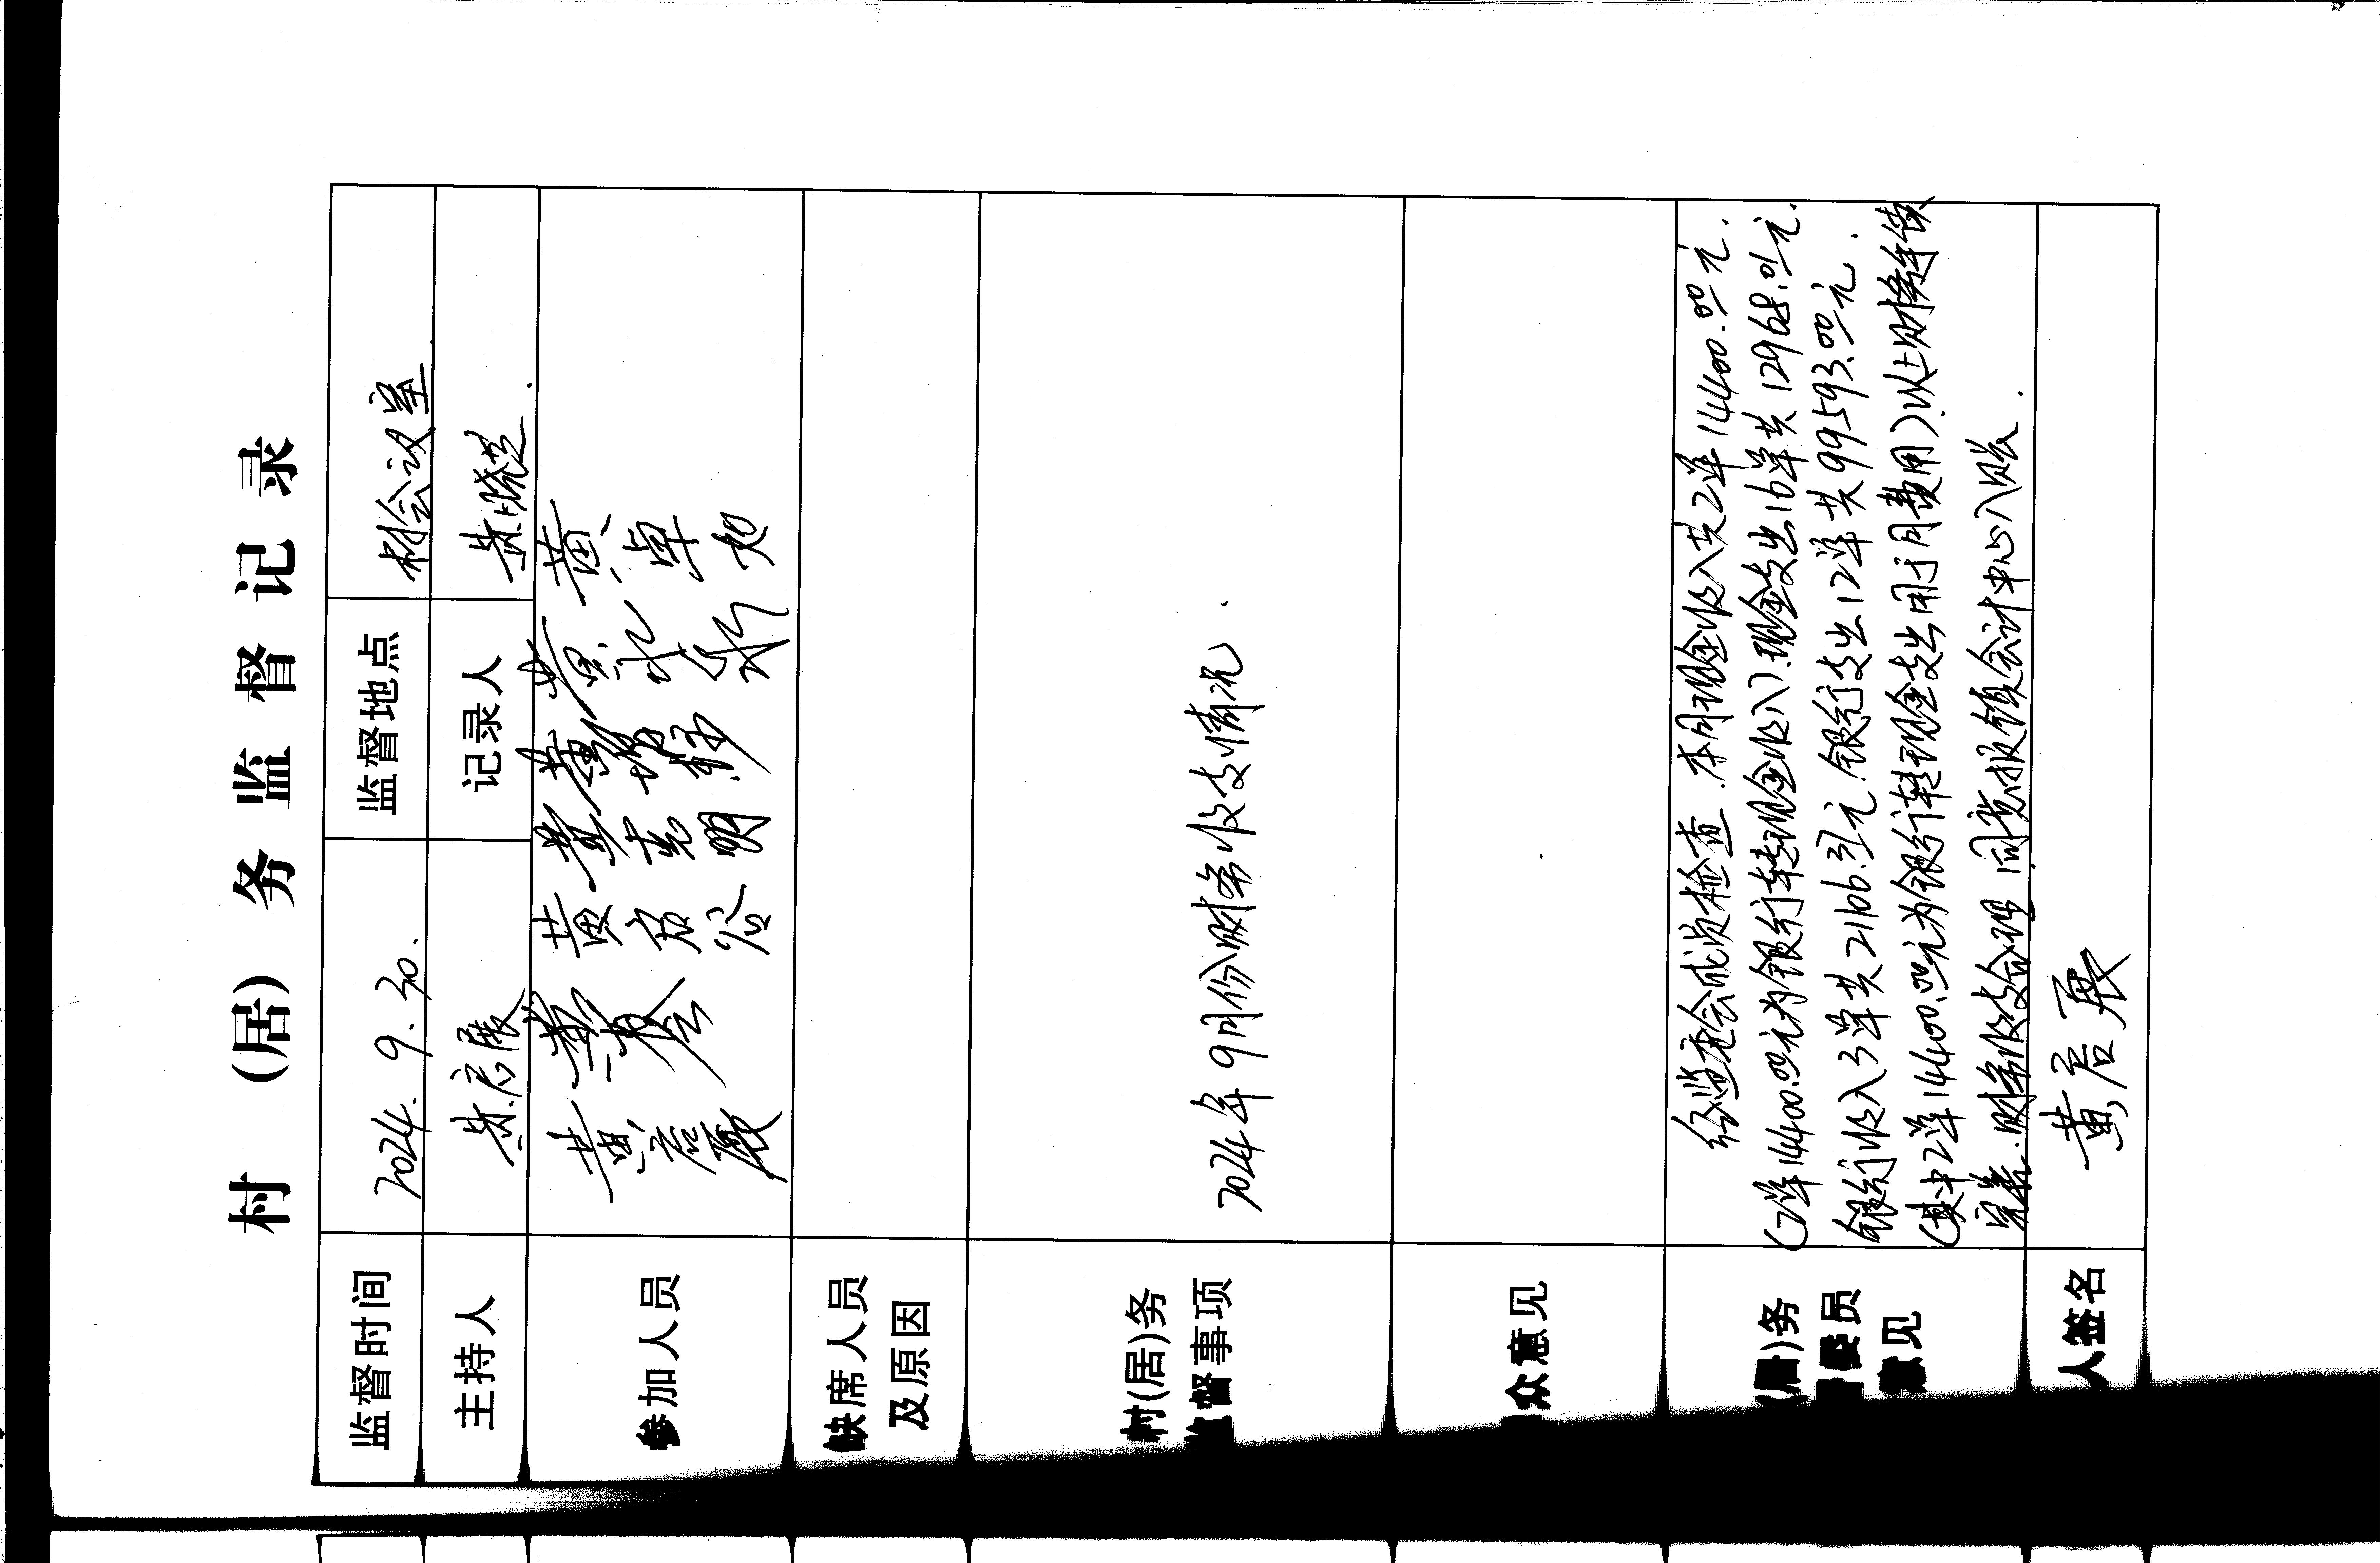 村（居）务监督记录
监督时间 2024.9.30. 监督地点 村会议室
主持人 黄居展 记录人 黄晓芝
参加人员
缺席人员及原因
村(居)务监督事项 2024年9月份财务收支情况.
众意见
(居)务
员
意见
经监委会成员检查.本月现金收入共2单14400.00元.
(2单14400.00元为银行转现金收入)现金支出16单共12968.01元
银行收入3单共21106.31元.银行支出12单共99593.00元.
(其中2单14400.00元为银行转现金支出用于月费用)以上财务手续
完善.财务收支合理 同意报镇会计中心入账.
人签名 黄居展